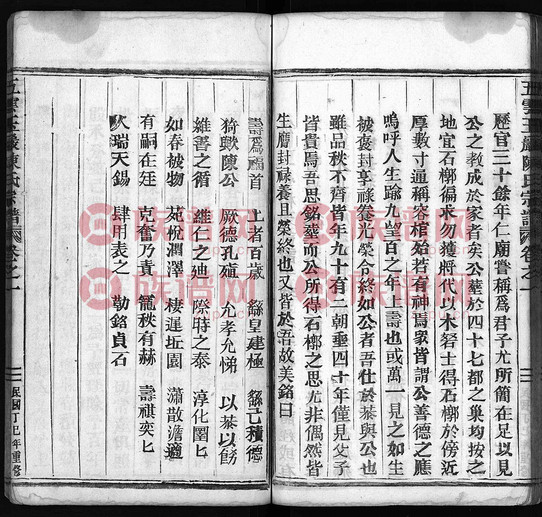 五雲玉巖陳氏宗譜
卷之一
歷官三十餘年仁廟嘗稱爲君子尤所簡在足以見
公之教成於家者矣公塟於四十七都之巢均按之
地宜石槨徧求勿獲將代以木窆士得石槨於傍近
厚數寸適稱容棺始若有神焉衆皆謂公善德之應
嗚呼人生踰九望百之年上壽也或萬一見之如生
被褒封享祿養光榮令終如公者吾仕於棊與公也
雖品秩不齊皆年九十有二朝垂四十年僅見父子
皆貴焉吾思銘墓而公所得石槨之思尤非偶然皆
生膺封祿養且榮終也又皆於吾故美銘曰
壽爲福首 上者百歲 繇皇建極 繇亡積德
猗歟陳公 厥德孔殖 允孝允悌 以棊以飭
維善之循 維仁之廸 際時之泰 淳化圛匕
如春被物 苑悅潤澤 棲遲坵園 瀟散澹適
有嗣在廷 克奮乃責 寵秩有赫 壽祺奕匕
人瑞天錫 肆用表之 勒銘貞石
五雲玉巖陳氏宗譜
卷之一
民國丁巳年重修
族譜网
族譜网
族譜网
族譜网